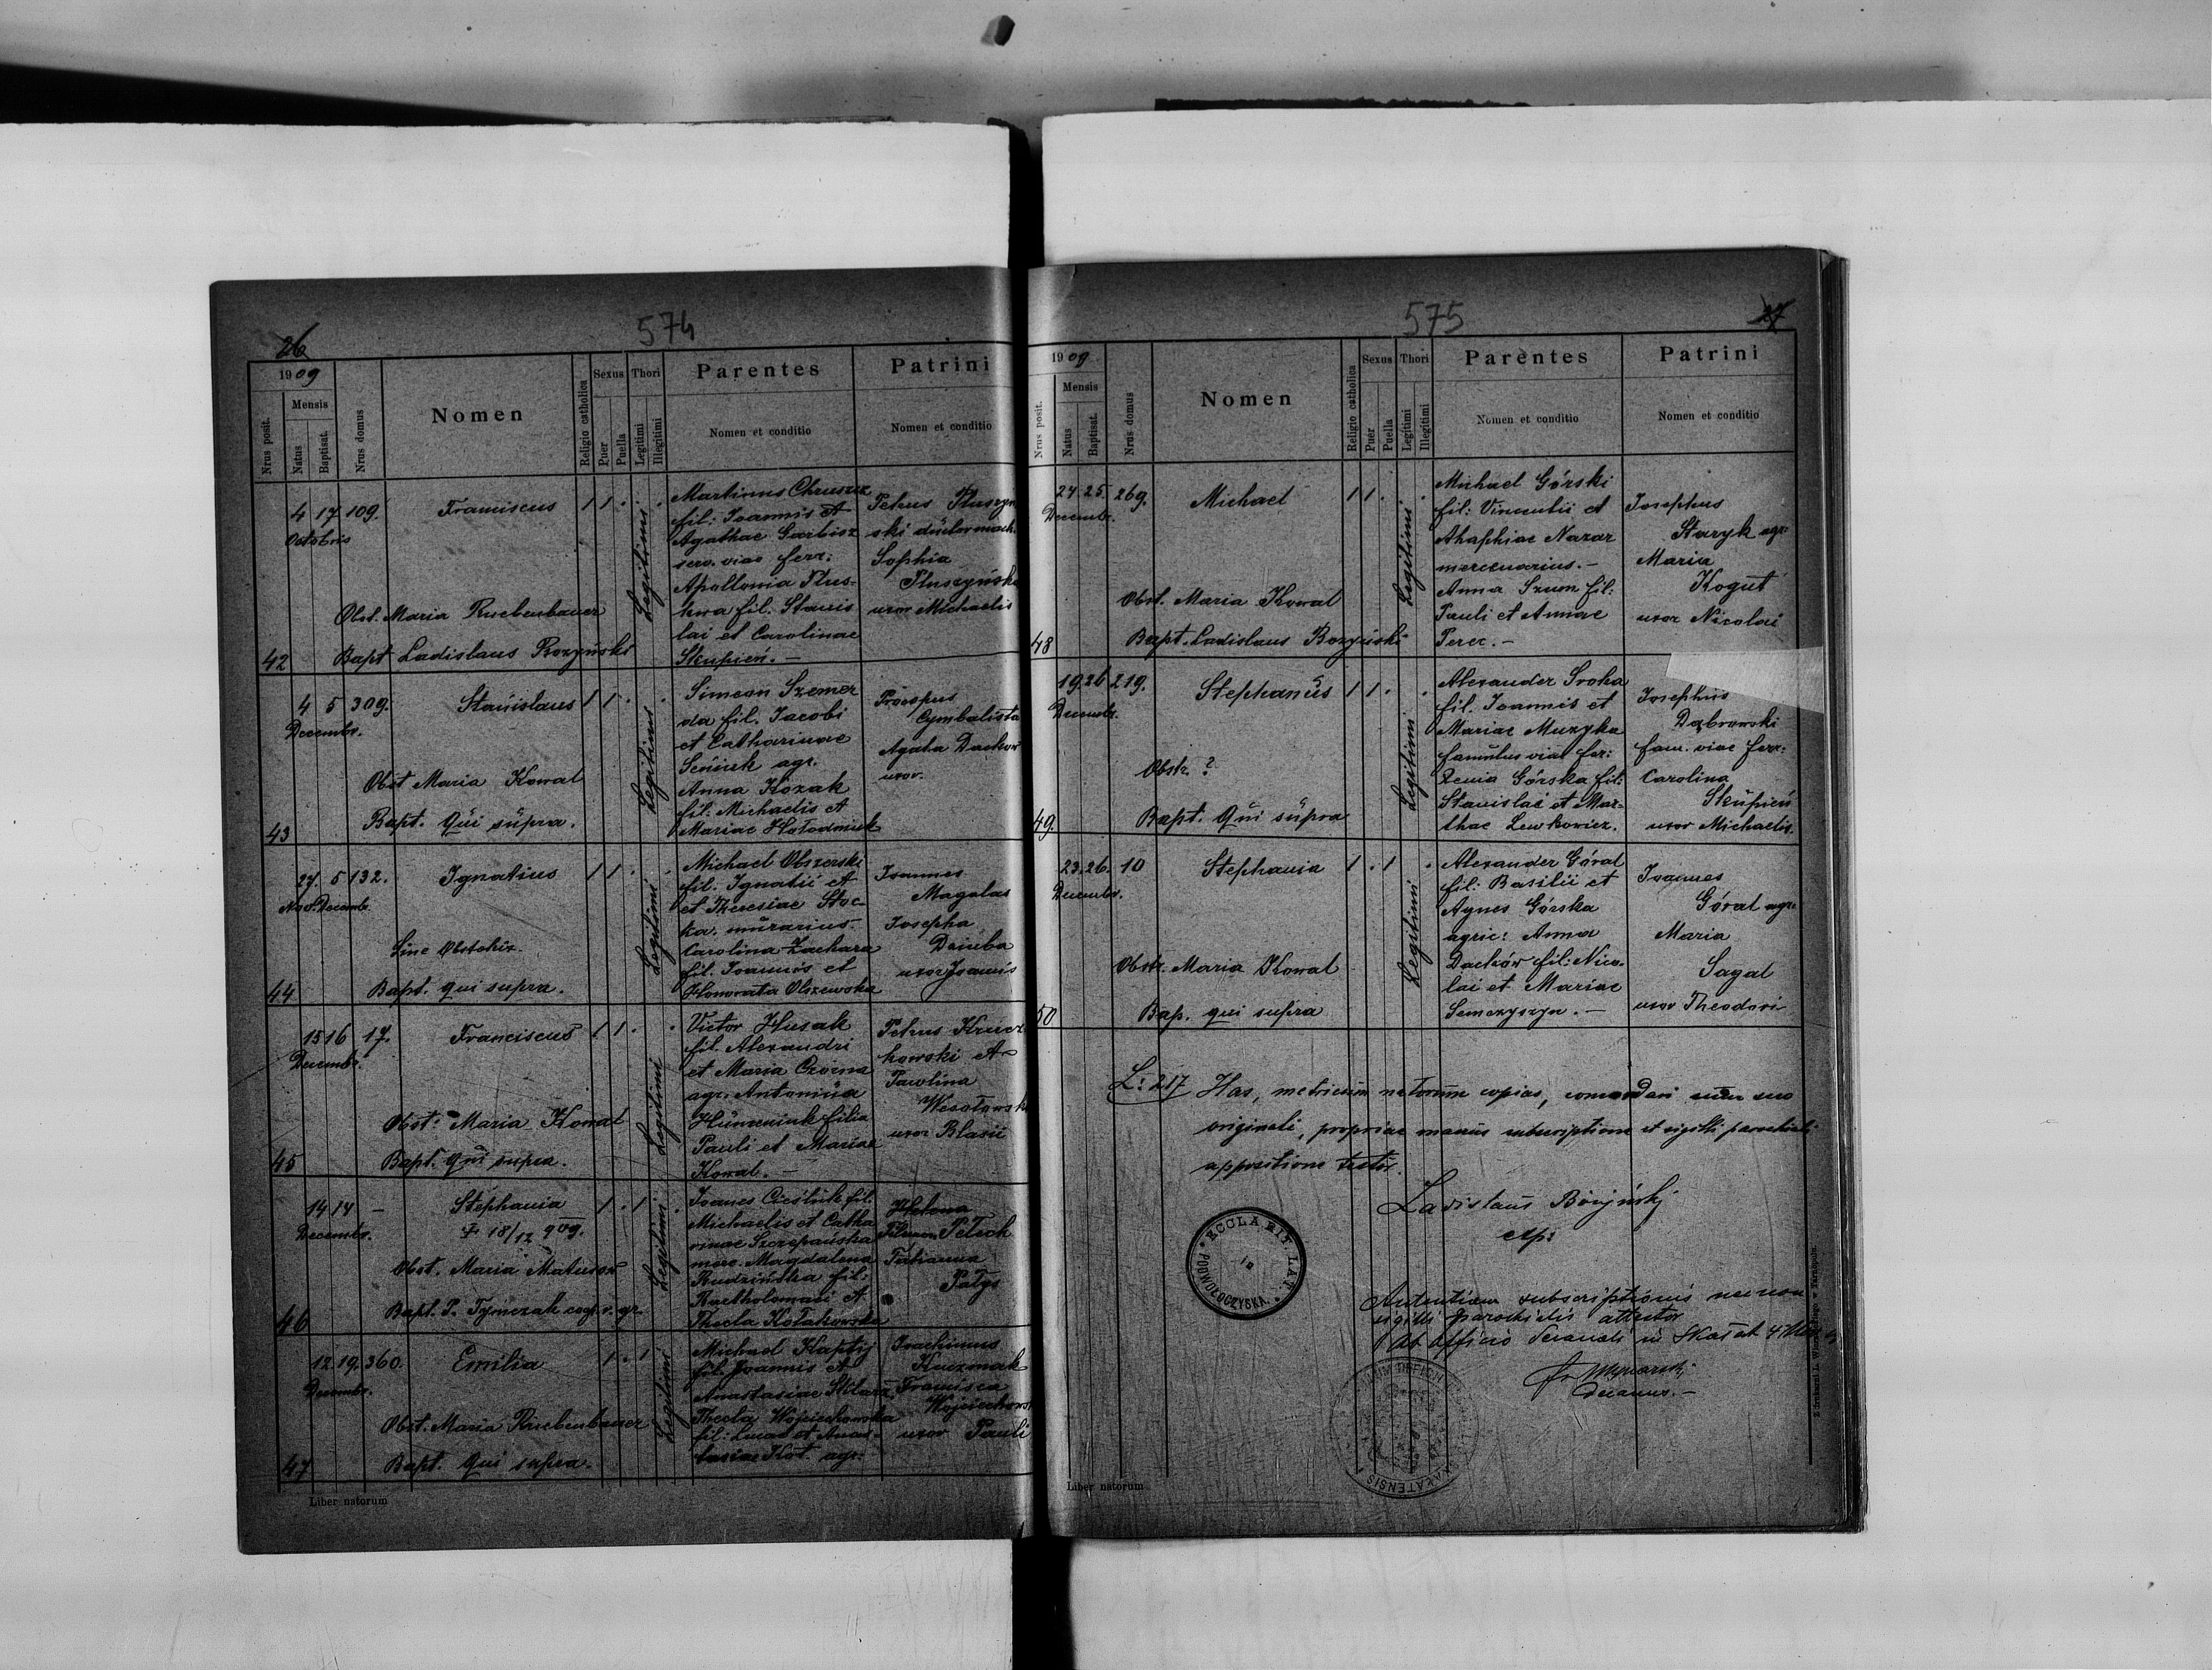 26
574
1909
Nrus posit.
Mensis
Natus
Baptisat.
Nrus domus
Nomen
Religio catholica
Sexus
Puer
Puella
Thori
Legitimi
Illegitimi
Parentes
Nomen et conditio
Patrini
Nomen et conditio
42
4 17 109.
Octobris
Franciscus
1 1 . .
Legitimi
Obst. Maria Ruebenbauer
Bapt Ladislaus Bozyński
Martinus Chruszcz
fil: Joannis et
Agathae Garbisz
serv. viae ferr:
Apollonia Plus-
kwa fil. Stanis
lai et Carolinae
Skupień. —
Petrus Pluszyń
ski ductor mach.
Sophia
Pluszyńska
uxor Michaelis
43
4 5 309.
Decembr.
Stanislaus
1 1 . .
Legitimi
Obst Maria Kowal
Bapt. Qui supra.
Simeon Szemer
da fil. Jacobi
et Catharinae
Seniuk agr.
Anna Kozak
fil. Michaelis et
Mariae Hołodniuk
Procopus
Cymbalista
Agata Dackow
uxor.
44
27. 5 132.
Nov. Decembr.
Ignatius
1 1 . .
Legitimi
Sine Obstetrix.
Bapt. qui supra.
Michael Obszerski
fil. Ignatii et
et Theresiae Stoc-
ka. murarius.
Carolina Zachara
fil. Joannis et
Honorata Olszewska
Joannes
Magalas
Josepha
Dziuba
uxor Joannis
45
15 16 17.
Decembr.
Franciscus
1 1 . .
Legitimi
Obst: Maria Kowal
Bapt. qui supra.
Victor Husak
fil. Alexandri
et Maria
agr. Antonina
filia
Pauli et Mariae
Kowal. —
Petrus Krucz
kowski et
Paulina
Wesołowska
uxor Blasii
46
14 14 -
Decembr.
Stephania
18/12 909.
1 . 1 .
Legitimi
Obst. Maria
Bapt. P. Tymczak coop. r. gr.
Joanes Cieślik fil.
Michaelis et Catha
rinae Szczepańska
merc. Magdalena
Rudzińska fil:
Bartholomaei et
Thecla Kołakowska
Helena
Petech
Tatianna
Patys
47
12. 19. 360.
Decembr.
Emilia
1 . 1
Legitimi
Obst. Maria Ruebenbauer
Bapt. Qui supra.
Michael Kaptij
fil. Joannis et
Anastasiae Sklarz
Thecla Wojciechowska
fil: Lucae et Anas-
tasiae Kot. agr.
Joachimus
Kuczmak
Francisca
Wojciechowska
uxor Pauli
Liber natorum
27
575
1909
Nrus posit.
Mensis
Natus
Baptisat.
Nrus domus
Nomen
Religio catholica
Sexus
Puer
Puella
Thori
Legitimi
Illegitimi
Parentes
Nomen et conditio
Patrini
Nomen et conditio
48
24. 25. 269.
Decembr.
Michael
1 1 . .
Legitimi
Obst. Maria Kowal
Bapt. Ladislaus Bozyński
Michael Górski
fil: Vincentii et
Ahaphiae Nazar
mercenarius. —
Anna Szum fil:
Pauli et Annae
Perec. —
Josephus
Staryk agr.
Maria
Kogut
uxor Nicolai
49.
19. 26 219.
Decembr.
Stephanus
1 1 . .
Legitimi
Obstr. ?
Bapt. Qui supra
Alexander Sroka
fil. Joannis et
Mariae Muzyka
famulus viae fer:
Xenia Górska fil:
Stanislai et Mar-
thae Lewkowicz.
Josephus
Dąbrowski
fam. viae ferr:
Carolina
Skupień
uxor Michaelis.
50
23. 26. 10
Decembr.
Stephania
1 . 1 .
Legitimi
Obstr. Maria Kowal
Bap. qui supra
Alexander Góral
fil: Basilii et
Agnes Górska
agric: Anna
Dacków fil: Nico-
lai et Mariae
Semczyszyn. —
Joannes
Góral agr.
Maria
Sagal
uxor Theodori
L: 217 Has, metricum natorum copias, concordari cum suo
originali, propriae manus subscriptione et sigilli parochialis
appositione testor.
Ladislaus Bozyński
exp:
ECCLA RIT. LAT.
PODWOŁOCZYSKA.
subscriptionis nec non
sigilli parochialis attestor
Ab officio decanali in Skałat
decanus. —
Liber natorum